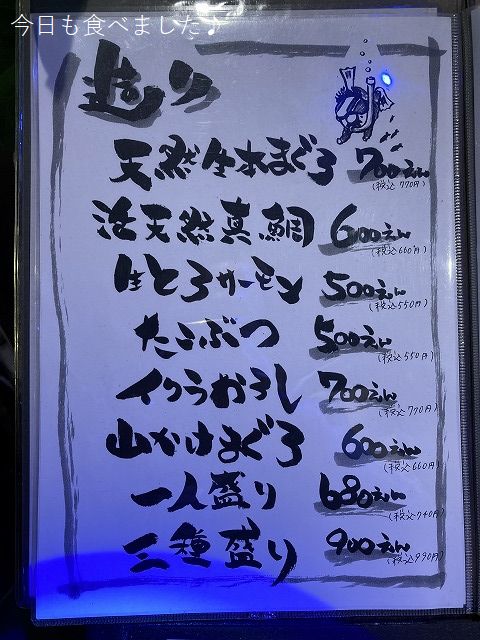 今日も食べました♪
造り
天然生本まぐろ 700えん
(税込770円)
活天然真鯛 600えん
(税込660円)
生とろサーモン 500えん
(税込550円)
たこぶつ 500えん
(税込550円)
イクラおろし 700えん
(税込770円)
山かけまぐろ 600えん
(税込660円)
一人盛り 680えん
(税込740円)
三種盛り 900えん
(税込990円)